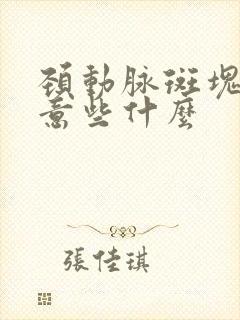 頸動脉斑塊
意些什麼
張佳琪